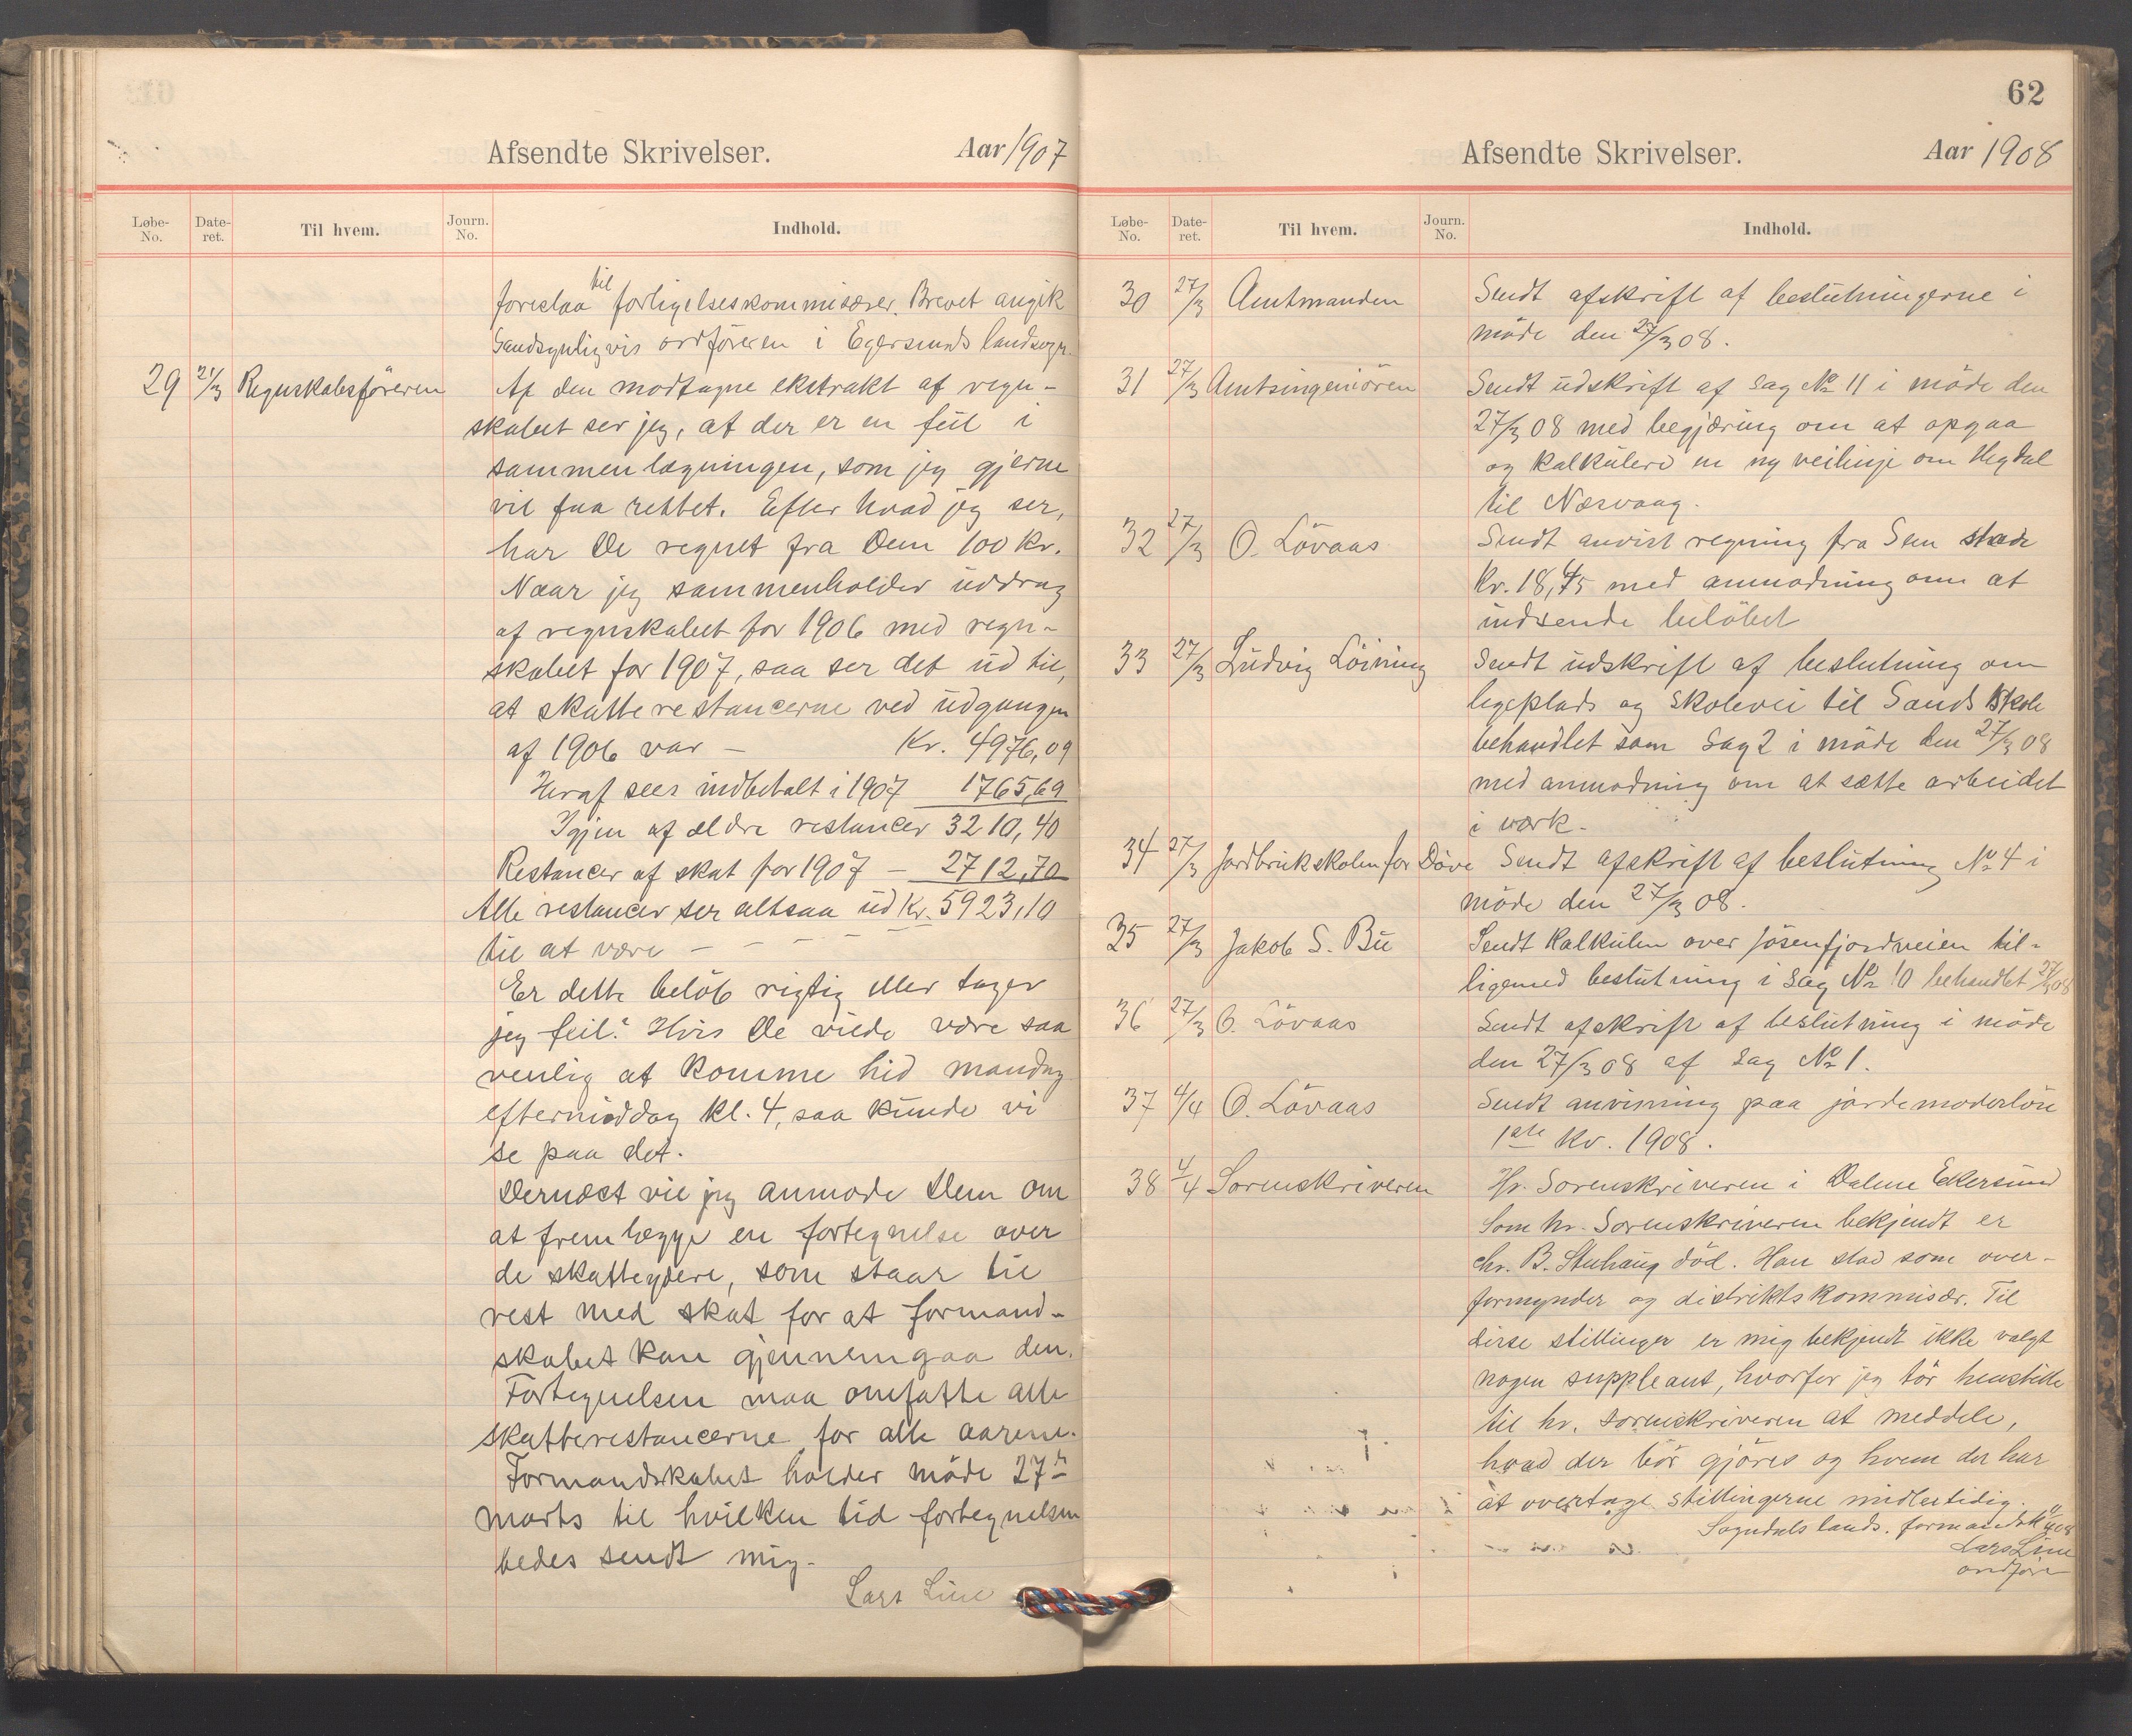 Afsendte Skrivelser. Aar 1907
Løbe-No. Date-ret. Til hvem. Journ. No. Indhold.
foreslaa til forligelseskommisærer. Brevet angik
Sandsynligvis ordføreren i Egersunds landsogn.
29 21/3 Regnskabsföreren Af den modtagne ekstrakt af regn-
skabet ser jeg, at der er en feil i
sammenlægningen, som jeg gjerne
vil faa rettet. Efter hvad jeg ser,
har De regnet fra Dem 100 Kr.
Naar jeg sammenholder uddrag
af regnskabet for 1906 med regn-
skabet for 1907, saa ser det ud til,
at skatterestancerne ved udgangen
af 1906 var – Kr. 4976,09
Heraf sees indbetalt i 1907 1765,69
Igjen af ældre restancer 3210,40
Restancer af skat for 1907 – 2712,70
Alle restancer ser altsaa ud Kr. 5923,10
til at være – – – – –
Er dette beløb rigtig eller tager
jeg feil? Hvis De vilde være saa
venlig at komme hid mandag
eftermiddag kl. 4, saa kunde vi
se paa det.
Dernæst vil jeg anmode Dem om
at fremlægge en fortegnelse over
de skatteydere, som staar til
rest med skat for at formand-
skabet kan gjennemgaa den.
Fortegnelsen maa omfatte alle
skatterestancerne for alle aarene.
Formandskabet holder möde 27de
marts til hvilken tid fortegnelsen
bedes sendt mig.
Lars Line
62
Afsendte Skrivelser. Aar 1908
Løbe-No. Date-ret. Til hvem. Journ. No. Indhold.
30 27/3 Amtmanden Sendt afskrift af beslutningerne i
möde den 27/3 08.
31 27/3 Amtsingeniören Sendt udskrift af sag No 11 i möde den
27/3 08 med begjæring om at opgaa
og kalkulere en ny veilinje om Hegdal
til Nesvaag.
32 27/3 O. Lövaas Sendt anvist regning fra Sem
Kr. 18,45 med anmodning om at
indsende belöbet
33 27/3 Ludvig Löining Sendt udskrift af beslutning om
legeplads og skolevei til Sands Skole
behandlet som sag 2 i möde den 27/3 08
med anmodning om at sætte arbeidet
i værk.
34 27/3 Jordbrukskolen for Döve Sendt afskrift af beslutning No 4 i
möde den 27/3 08.
35 27/3 Jakob S. Bu Sendt kalkulen over Jösenfjordveien til-
ligemed beslutning i sag No 10 behandlet 27/3 08
36 27/3 O. Lövaas Sendt afskrift af beslutning i möde
den 27/3 08 af sag No 1.
37 4/4 O. Lövaas Sendt anvisning paa jordemoderlön
1ste Kv. 1908.
38 4/4 Sorenskriveren Hr. Sorenskriveren i Dalene Ekersund
Som hr. Sorenskriveren bekjendt er
Chr. B. Stuhaug död. Han stod som over-
formynder og distriktskommisær. Til
disse stillinger er mig bekjendt ikke valgt
nogen suppleant, hvorfor jeg tör henstille
til hr. sorenskriveren at meddele,
hvad der bör gjöres og hvem der har
at overtage stillingerne midlertidig.
Sogndals lands. formandsk. 4/4 08
Lars Line
ordförer